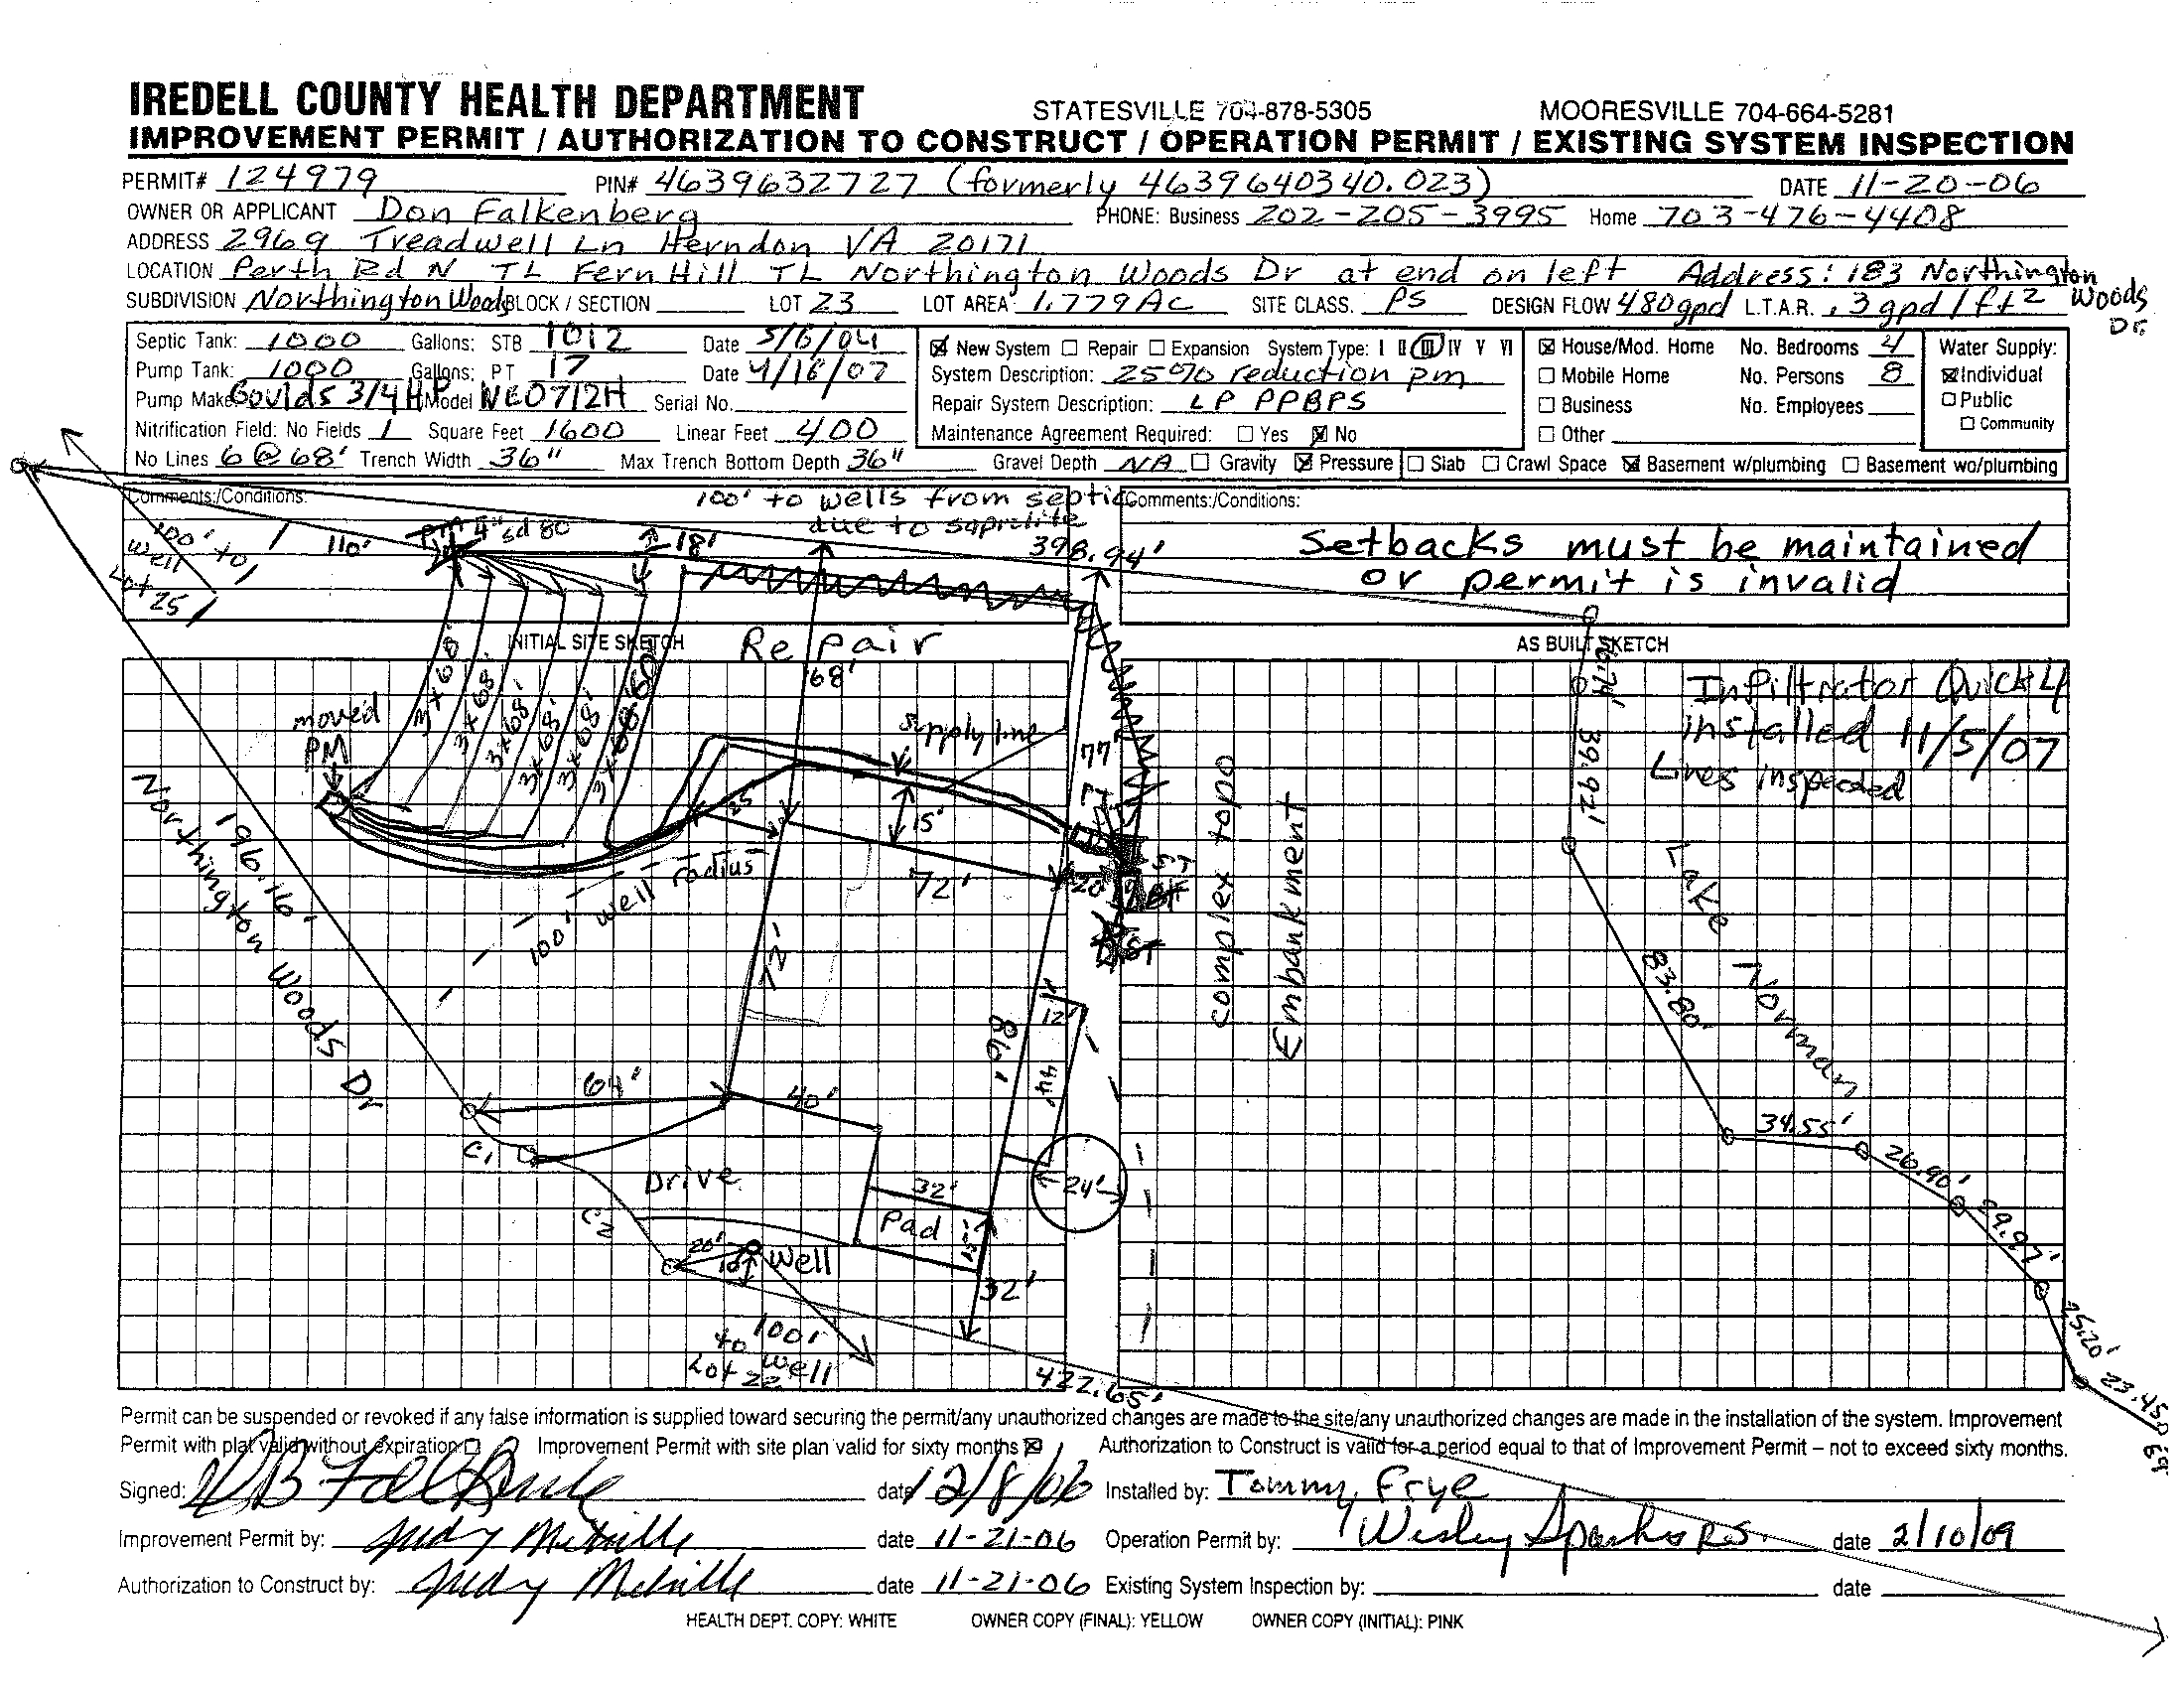 IREDELL COUNTY HEALTH DEPARTMENT STATESVILLE 704-878-5305 MOORESVILLE 704-664-5281
IMPROVEMENT PERMIT / AUTHORIZATION TO CONSTRUCT / OPERATION PERMIT / EXISTING SYSTEM INSPECTION
PERMIT# 124979 PIN# 4639632727 (formerly 4639640340.023) DATE 11-20-06
OWNER OR APPLICANT Don Falkenberg PHONE: Business 202-205-3995 Home 703-476-4408
ADDRESS 2969 Treadwell Ln Herndon VA 20171
LOCATION Perth Rd N TL Fern Hill TL Northington Woods Dr at end on left Address: 183 Northington Woods Dr.
SUBDIVISION Northington Woods BLOCK / SECTION LOT 23 LOT AREA 1.779 Ac SITE CLASS. PS DESIGN FLOW 480gpd L.T.A.R. .3 gpd/ft2
Septic Tank: 1000 Gallons: STB 1012 Date 5/6/04
Pump Tank: 1000 Gallons: PT 17 Date 4/16/07
Pump Make: Goulds 3/4 HP Model WE0712H Serial No.
Nitrification Field: No Fields 1 Square Feet 1600 Linear Feet 400
No Lines 6 @ 68' Trench Width 36" Max Trench Bottom Depth 36" Gravel Depth NA Gravity Pressure Slab Crawl Space Basement w/plumbing Basement wo/plumbing
New System Repair Expansion System Type: I II III IV V VI
System Description: 25% reduction pm
Repair System Description: LP PPBPS
Maintenance Agreement Required: Yes No
House/Mod. Home No. Bedrooms 4
Mobile Home No. Persons 8
Business No. Employees
Other
Water Supply:
Individual
Public
Community
Comments:/Conditions: 100' to wells from septic
due to saprolite
Comments:/Conditions:
Setbacks must be maintained
or permit is invalid
100' to
well
Lot 25
110'
PM 4" sd 80
18'
398.94'
INITIAL SITE SKETCH
Repair
68'
AS BUILT SKETCH
Infiltrator Quick 4
installed 11/5/07
Lines inspected
moved
PM
3x68'
3x68'
3x68'
3x68'
3x68'
supply line
77
39.92'
25'
15'
72'
20'
100' well radius
196.16'
Northington Woods Dr
complex topo
Embankment
Lake Norman
83.80'
72'
86'
12'
44'
64'
40'
C1
C2
Drive
32'
Pad
24'
20'
Well
32'
34.55'
26.90'
29.97'
25.20'
100'
to well
Lot 22
422.65'
Permit can be suspended or revoked if any false information is supplied toward securing the permit/any unauthorized changes are made to the site/any unauthorized changes are made in the installation of the system. Improvement
Permit with plat valid without expiration Improvement Permit with site plan valid for sixty months Authorization to Construct is valid for a period equal to that of Improvement Permit – not to exceed sixty months.
Signed: date 12/8/06 Installed by: Tommy Frye
Improvement Permit by: Judy Melville date 11-21-06 Operation Permit by: Wesley Sparks RS. date 2/10/09
Authorization to Construct by: Judy Melville date 11-21-06 Existing System Inspection by: date
HEALTH DEPT. COPY: WHITE OWNER COPY (FINAL): YELLOW OWNER COPY (INITIAL): PINK